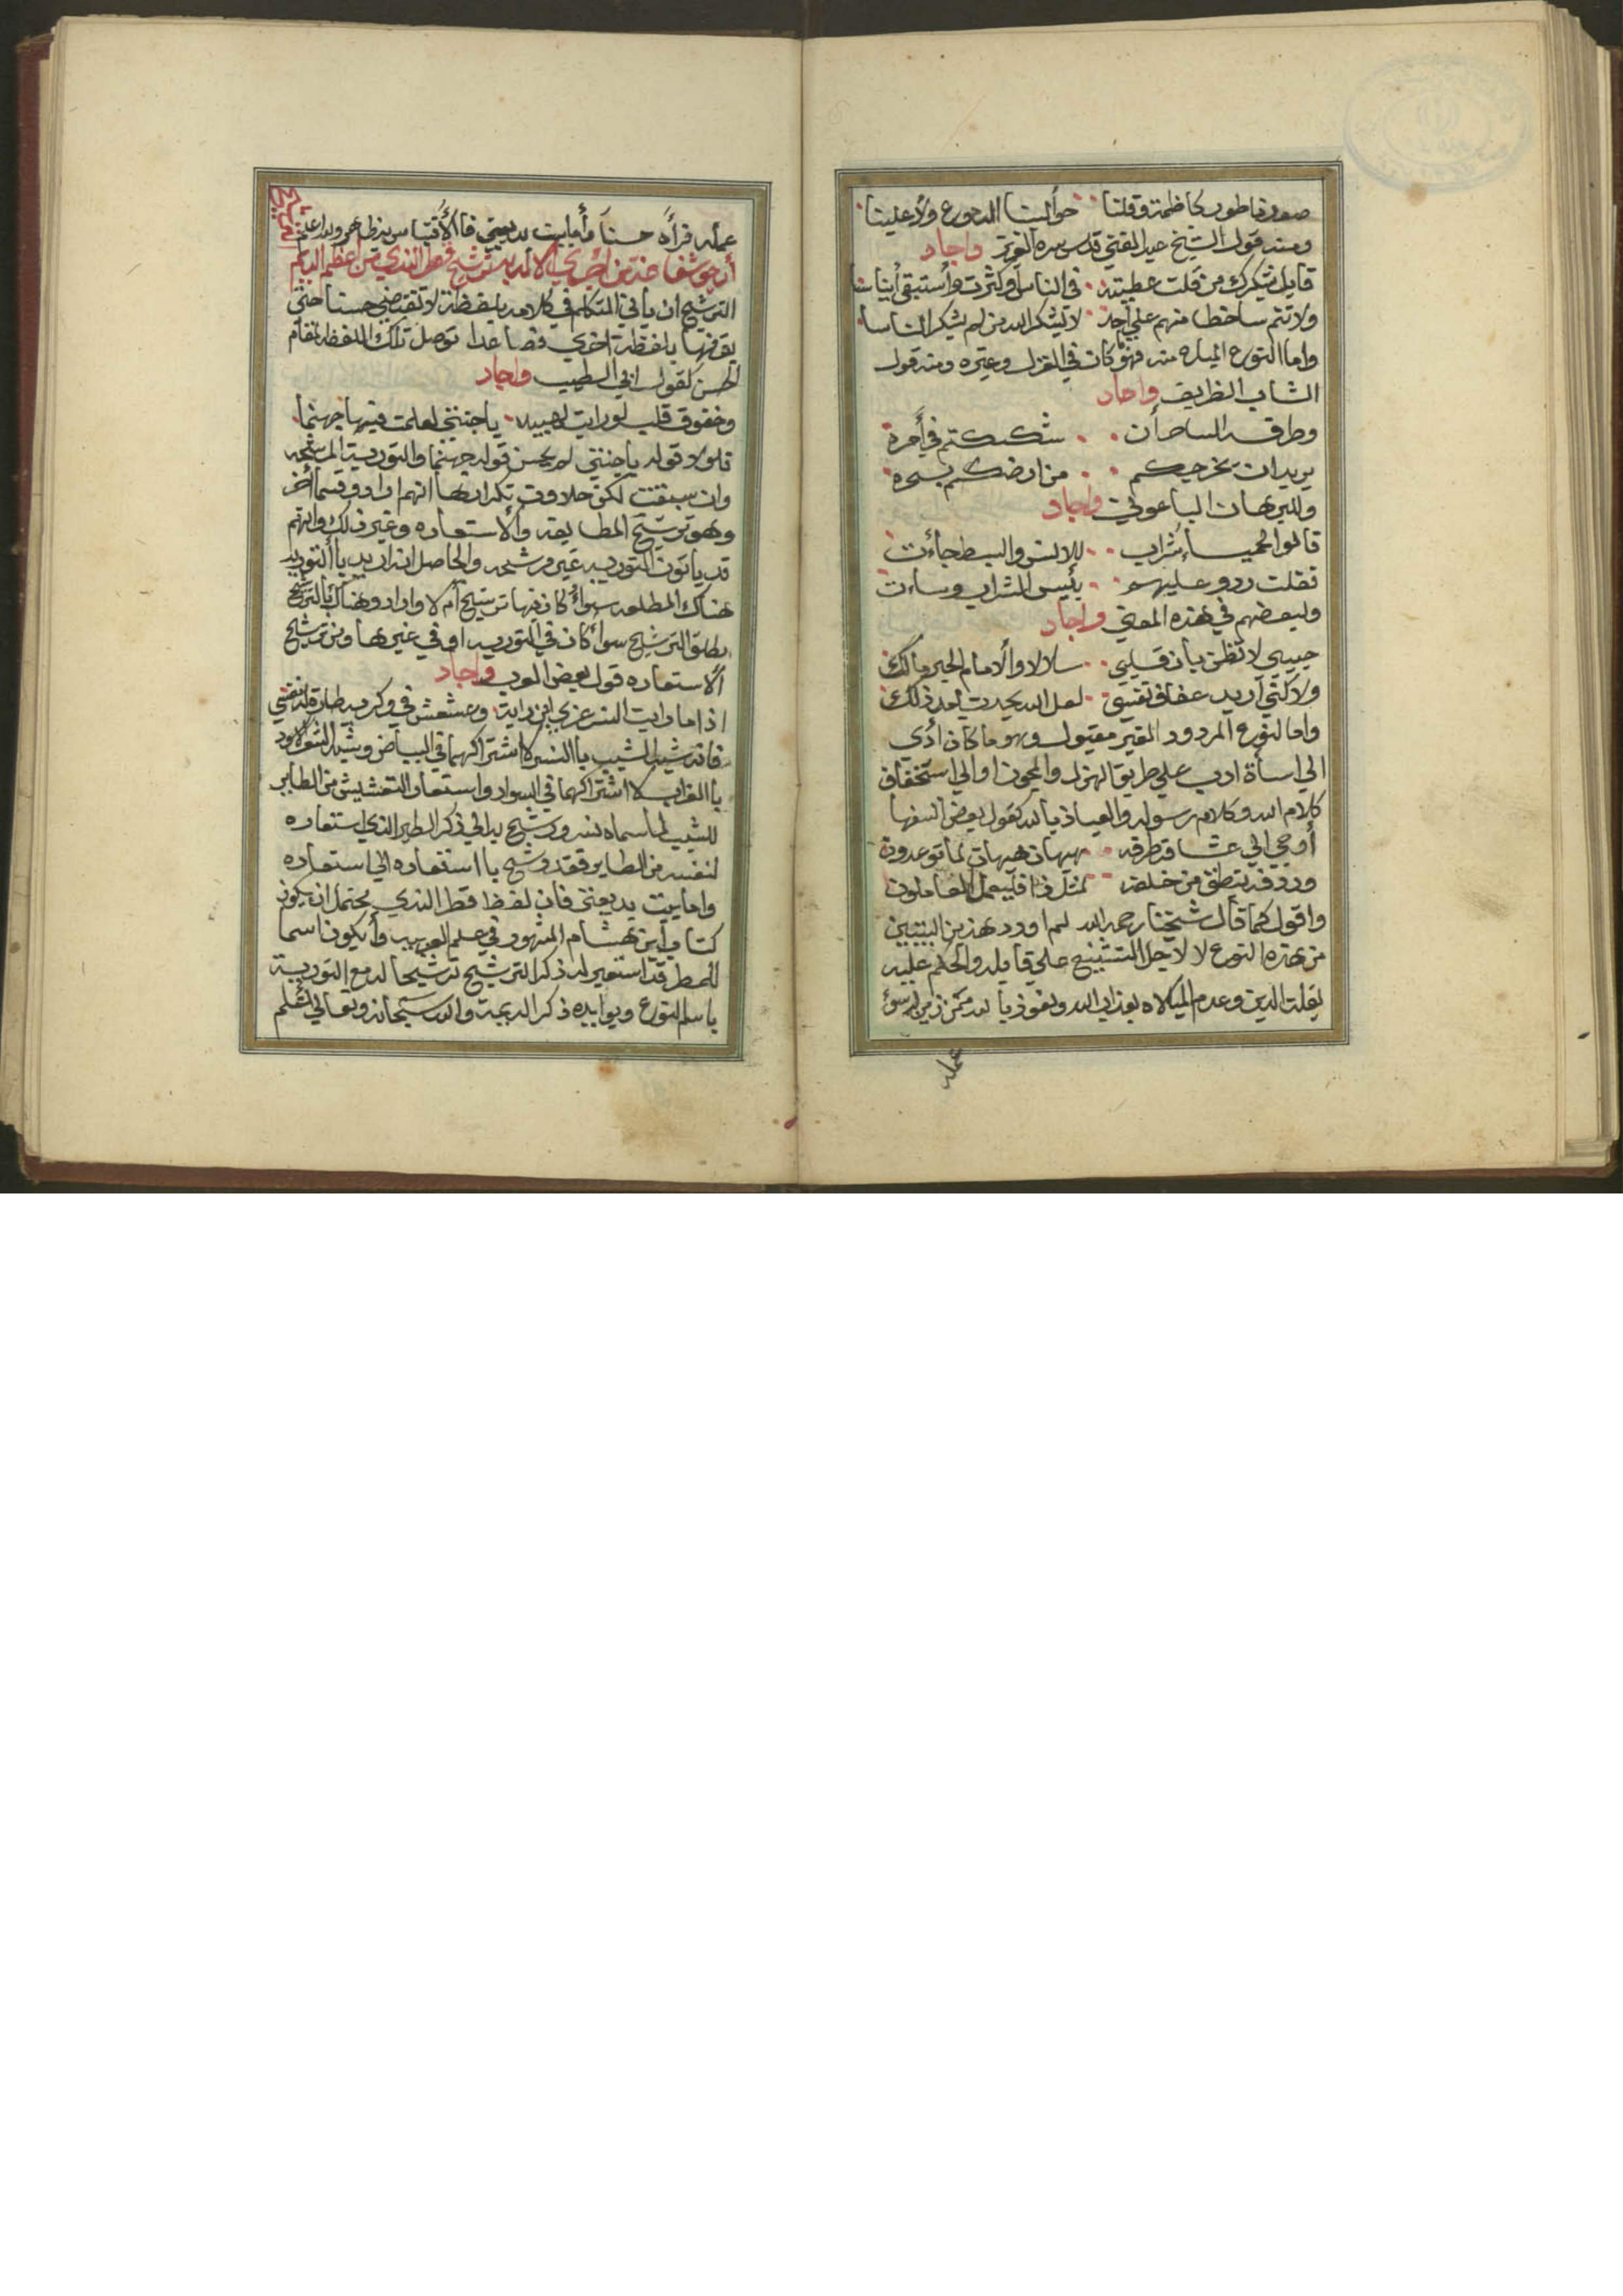 صدورنا طور كاظمة وقلنا حوالينا الدموع ولا علينا
ومنه قول الشيخ عبد الغني قدس سره العزيز واجاد
قابل بشكرك من قلت عطيته في الناس او كثرت واستبقي ايناسا
ولا تتم ساخطا منهم علي احد لا يشكر الله من لم يشكر الناسا
واما النوع المباح منه فهو ما كان في الغزل وغيره ومنه قول
الشاب الظريف واجاد
وطرفه الساحر ان شككتم في امره
يريد ان يخرجكم من ارضكم بسحره
وللبرهان الباعوني واجاد
قالوا الحميا شراب للانس والبسط جاءت
فقلت ردو عليهمو بئيس الشراب وساءت
ولبعضهم في هذه المعني واجاد
حبيبي لا تظن بان قلبي سلا لا والامام الحبر مالك
ولاكني اريد عفاف نفسي لعل الله يحدث بعد ذلك
واما النوع المردود الغير مقبول وهو ما كان ادي
الي اسأة ادب علي طريق الهزل والمجون او الي استخفاف
كلام الله وكلام رسوله والعياذ بالله كقول بعض السفها
أوحي الي عشاقه طرفه هيهات هيهات لما توعدون
وردفه ينطق من خلفه لمثل ذا فليعمل العاملون
واقول كما قال شيخنا رحمه الله لم اورد هذين البيتين
من هذه النوع لا لاجل التشنيع علي قايله والحكم عليه
بقلت الدين وعدم المبالاه بعذاب الله ونعوذ بالله ممن زين له سوء
عمله
عمله فرأه حسنا وأما بيت بديعتي فالأقتباس به ظاهر والله اعلم
أرجو شفاعته من اجري الاله به ترشيح قطر الندي من اعظم الديم
الترشيح ان ياتي المتكلم في كلامه بلفظة لا تقتضي حسنا حتي
يقرنها بلفظة اخري فصاعدا توصل تلك اللفظه لمقام
الحسن كقول ابي الطيب واجاد
وخفوق قلب لو رايت لهيبه يا جنتي لعلمت فيها جهنما
فلولا قوله يا جنتي لم يحسن قوله جهنما والتورية المرشحه
وان سبقت لكن حلاوت تكرارها انهم افادو قسما اخر
وهو ترشيح المطابقه والاستعاره وغير ذلك وانهم
قد ياتون التوريه غير مرشحه والحاصل انه اريد با التوريه
هناك المطلقه سواء كان فيها ترشيح ام لا وارادو هناك بالترشيح
مطلق الترشيح سواء كان في التوريه او في غيرها ومن ترشيح
الاستعاره قول بعض العرب واجاد
اذا ما رايت النسر عزي ابن داية وعشعش في وكر به طارة له نفسي
فانه شبه الشيب با النسر لاشتراكهما في البياض وشبه الشعر الاسود
با الغراب لا اشتراكهما في السواد واستعار التعشيش من الطاير
للشيب لما سماه نسر ورشح به الي ذكر الطير الذي استعاره
لنفسه من الطاير فقد رشح با استعاره الي استعاره
واما بيت بديعتي فان لفظ قطر الندي يحتمل ان يكون
كتاب ابن هشام المشهور في علم العربيه وأ يكون اسما
للمطر فقد استعير له ذكر الترشيح ترشيحا له مع التورية
باسم النوع ويوايده ذكر الديمة والله سبحانه وتعالي أعلم